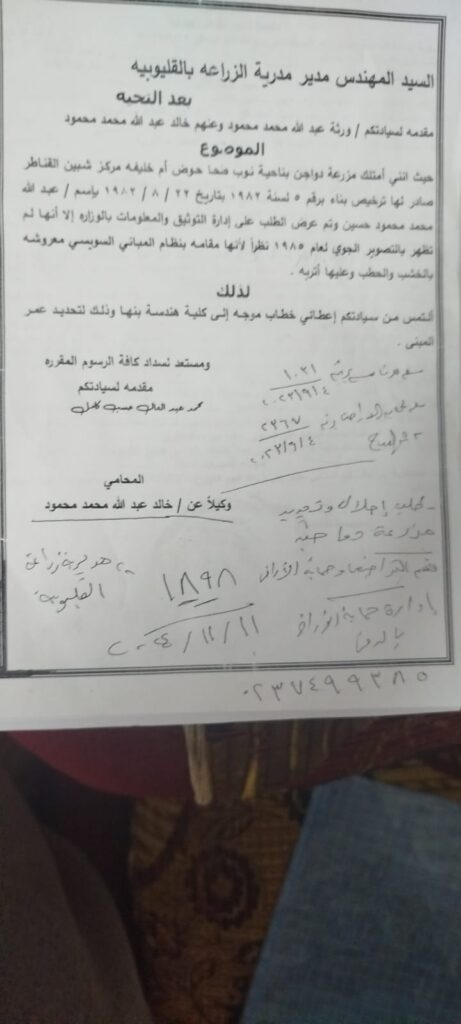 السيد المهندس مدير مدرية الزراعه بالقليوبيه
بعد التحيه
مقدمه لسيادتكم / ورثة عبد الله محمد محمود وعنهم خالد عبد الله محمد محمود
الموضوع
حيث انني أمتلك مزرعة دواجن بناحية نوب طحا حوض أم خليفه مركز شبين القناطر
صادر لها ترخيص بناء برقم ٥ لسنة ١٩٨٢ بتاريخ ٢٢ / ٨ / ١٩٨٢ بإسم / عبد الله
محمد محمود حسين وتم عرض الطلب على إدارة التوثيق والمعلومات بالوزاره إلا أنها لم
تظهر بالتصوير الجوي لعام ١٩٨٥ نظراً لأنها مقامه بنظام المباني السويسي معروشه
بالخشب والحطب وعليها أتربه .
لذلك
ألتمس من سيادتكم إعطائي خطاب موجه إلى كلية هندسة بنها وذلك لتحديد عمر
المبنى .
ومستعد لسداد كافة الرسوم المقرره
مقدمه لسيادتكم
المحامي
وكيلاً عن / خالد عبد الله محمد محمود
١٠٣١
٢٠٢٣/٩/٤
٢٣٦٧
٢٠٢٣/٩/٤
- طلب إحلال وتجديد
مزرعة دواجن
مديرية زراعة
القليوبية
١٨٩٨
٢٠٢٤/١٢/١١
إدارة حماية الأراضي
بالدقي
٠٢٣٧٤٩٩٣٨٥